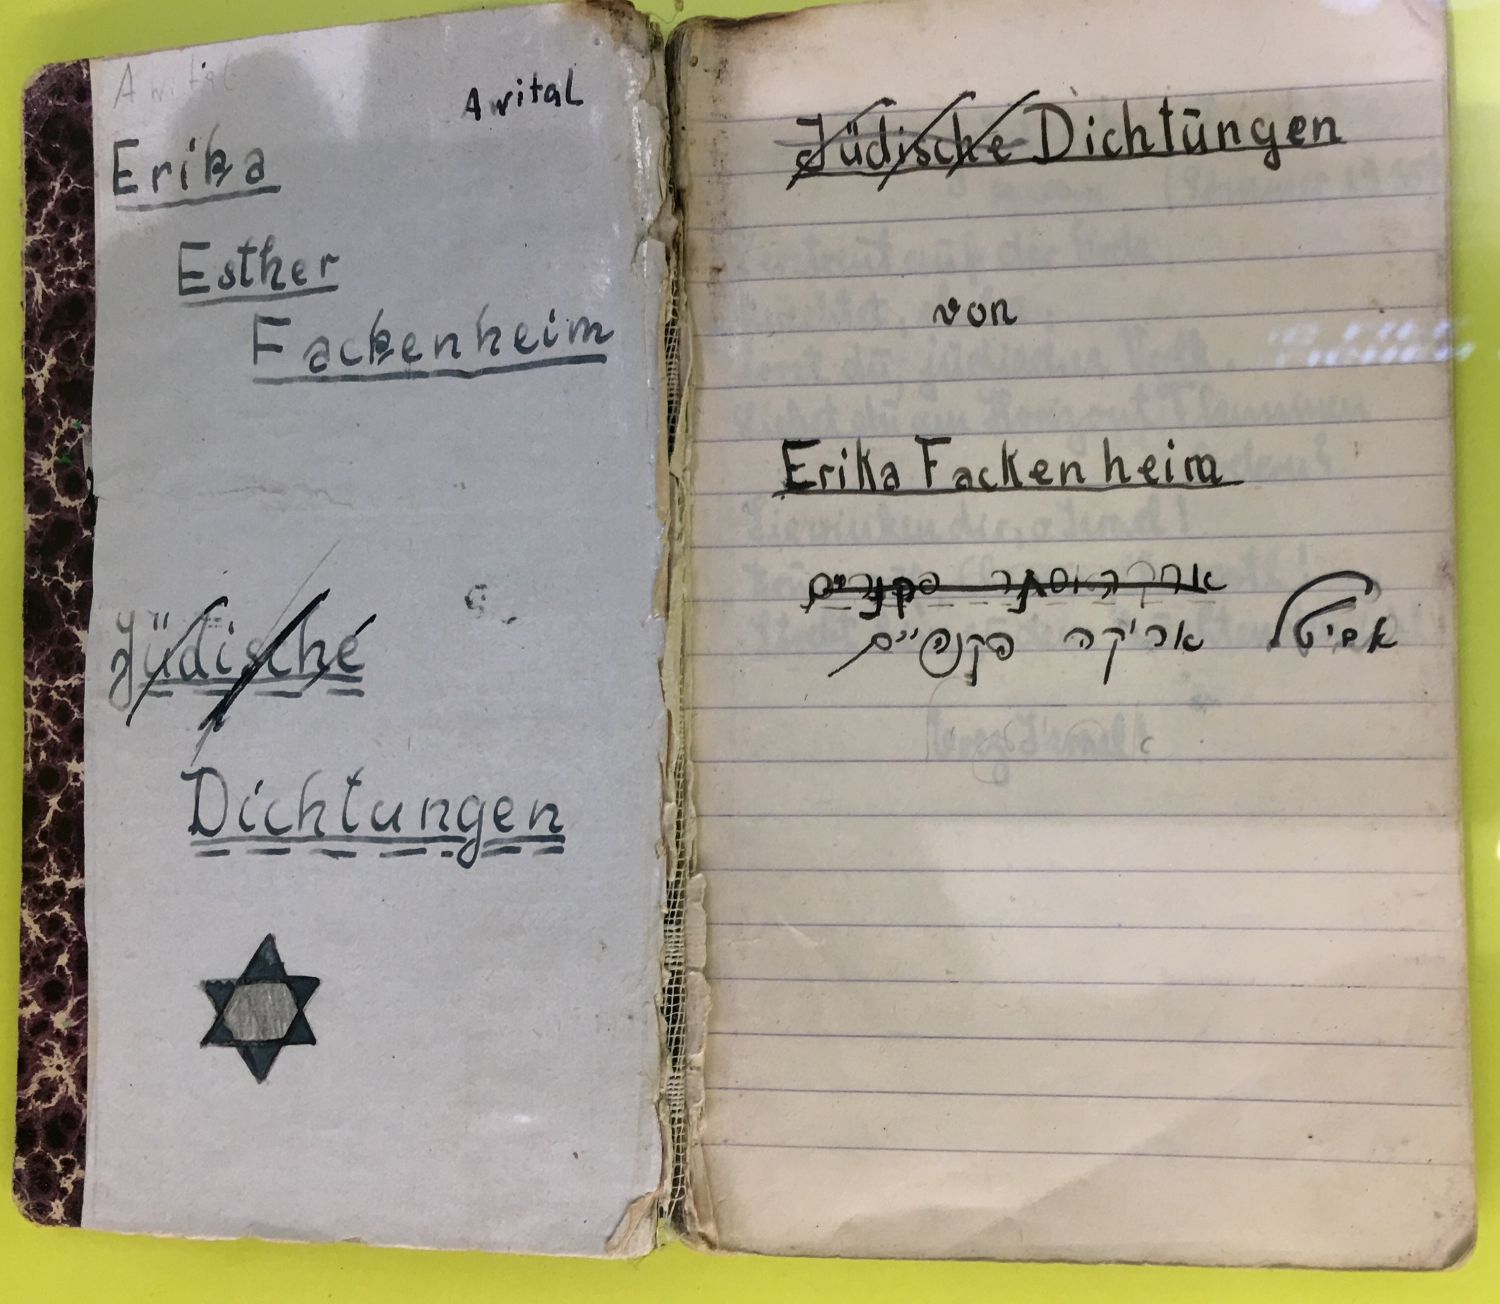 Awital
Awital
Erika
Esther
Fackenheim
Jüdische
Dichtungen
Jüdische Dichtūngen
von
Erika Fackenheim
אריקה אסתר
אריקה פקנהיים אביטל